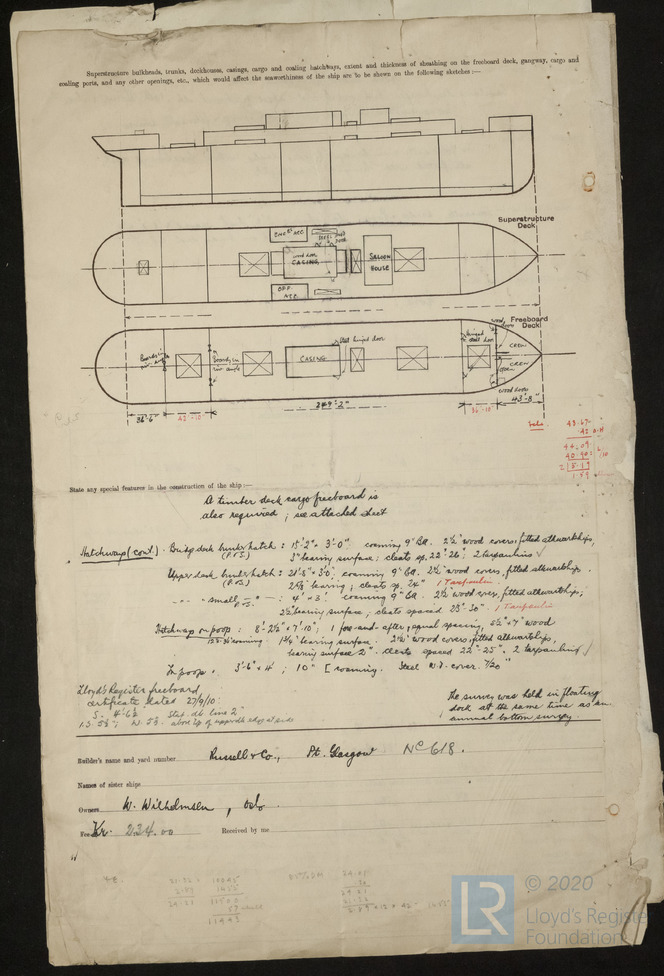 Superstructure bulkheads, trunks, deckhouses, casings, cargo and coaling hatchways, extent and thickness of sheathing on the freeboard deck, gangway, cargo and
coaling ports, and any other openings, etc., which would affect the seaworthiness of the ship are to be shown on the following sketches :—
Superstructure
Deck
CASING
SALOON
HOUSE
OFF.
Freeboard
Deck
wood door
Steel hinged door
hinged
steel door
Boards in
Boards in
CASING
CREW
CREW
wood door
36'-6"
42'-10"
249'-2"
36'-10"
43'-8"
43.67
44.09
1.59
State any special features in the construction of the ship :—
A timber deck cargo freeboard is
also required ; see attached sheet
Hatchways (cont.) . Bridge deck bunker hatch : 15'-2" × 3'-0" coaming 9" BA. 2½" wood covers, fitted athwartships,
(P. & S.) 3" bearing surface ; cleats sp. 22"-26" ; 2 tarpaulins ✓
Upper deck bunker hatch : 21'-8" × 3'-0" ; coaming 9" BA. 2½" wood covers, fitted athwartships.
(P. & S.) bearing ; cleats sp. 24" 1 Tarpaulin.
" " small " : 4' × 3' coaming 9" BA. 2½ wood covers, fitted athwartships ;
P. & S. 2½ bearing surface ; cleats spaced 1 Tarpaulin
Hatchway on poop : 8'-2½" × 7'-10" ; 1 fore-and-after, equal spacing, 6½" × 7" wood
coaming 1¾" bearing surface. 2½" wood covers, fitted athwartships,
bearing surface 2". Cleats spaced 22"-25". 2 tarpaulins ✓
In poop : 3'-6" × 4' ; 10" [ coaming. Steel W.D. cover. 7/20"
Lloyd's Register freeboard
certificate dated 27/9/10:
S. 4'-6½
The survey was held in floating
dock at the same time as an
annual bottom survey.
Builder's name and yard number Russell & Co., Pt. Glasgow No 618.
Names of sister ships
Owners W. Wilhelmsen, Oslo
Fee Kr. 234.00 Received by me
LR
© 2020
Lloyd's Register
Foundation